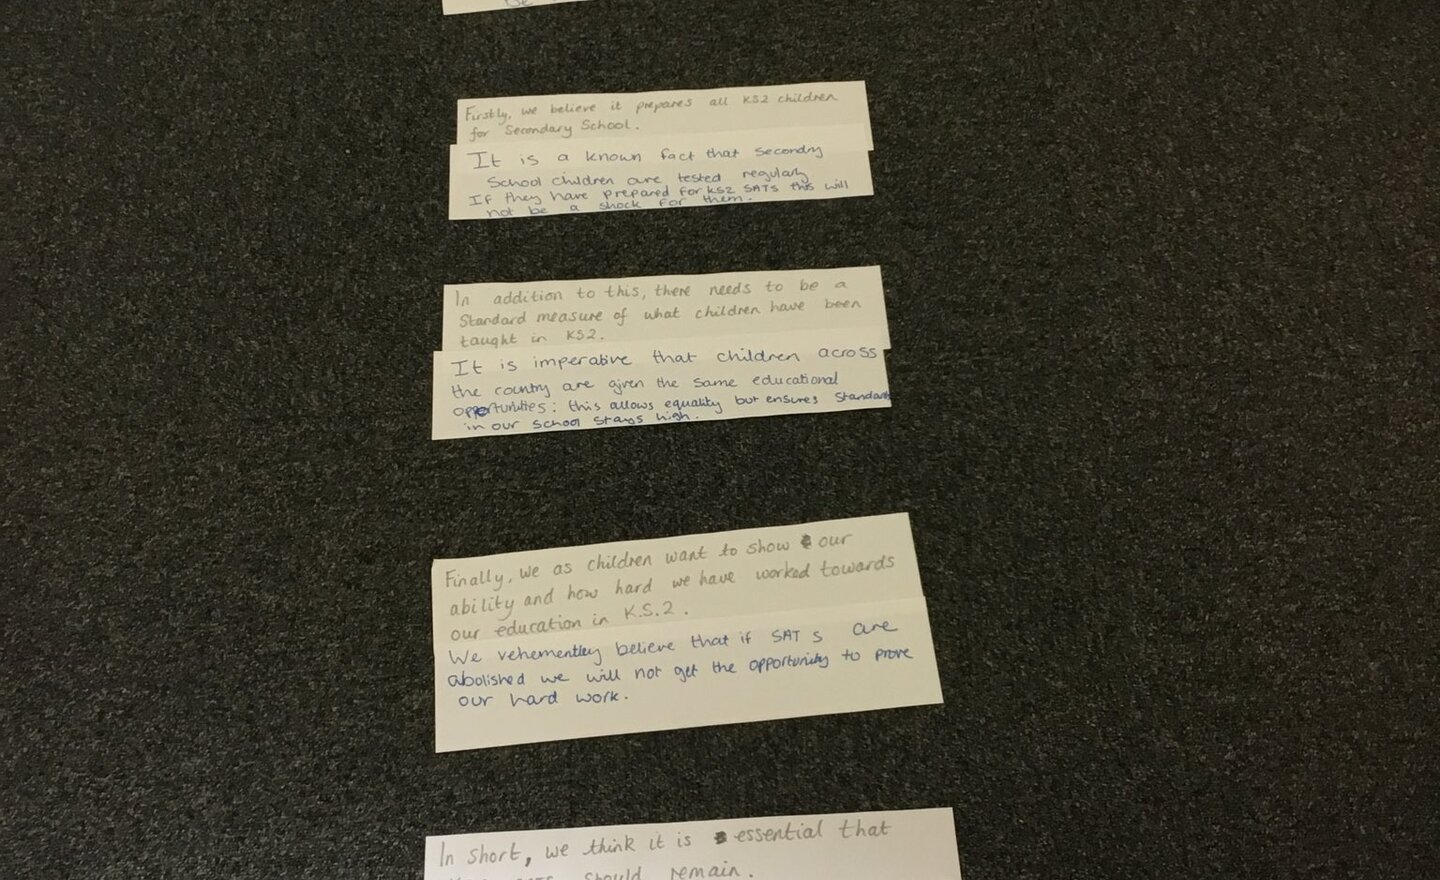 Be
Firstly, we believe it prepares all KS2 children
for Secondary School.
It is a known fact that secondry
School children are tested regularly
If they have prepared for KS2 SATs this will
not be a shock for them.
In addition to this, there needs to be a
Standard measure of what children have been
taught in KS2.
It is imperative that children across
the country are given the same educational
opportunities: this allows equality but ensures Standards
in our School stays high.
Finally, we as children want to show our
ability and how hard we have worked towards
our education in K.S.2.
We vehemently believe that if SAT s are
abolished we will not get the opportunity to prove
our hard work.
In short, we think it is essential that
should remain.